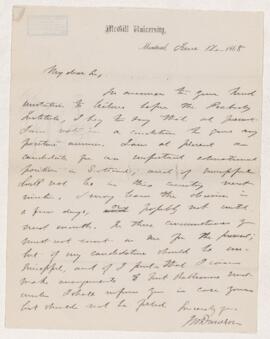 McGill University.
Montreal, June 12 1868
My dear Sir,
In answer to your kind
invitation to lecture before the Peabody
Institute, I beg to say that at present
I am not in a condition to give any
positive answer. I am at present an
candidate for an important educational
position in Scotland, and if successful
shall not be in this country next
winter. I may learn the decision in
a few days, not until
next month. In these circumstances you
must not count on me for the present;
but if my candidature should be un-
successful, and if I find that I can
make arrangements to visit Baltimore next
winter I shall inform you in case your
list should not be filled
Sincerely yours
J W Dawson